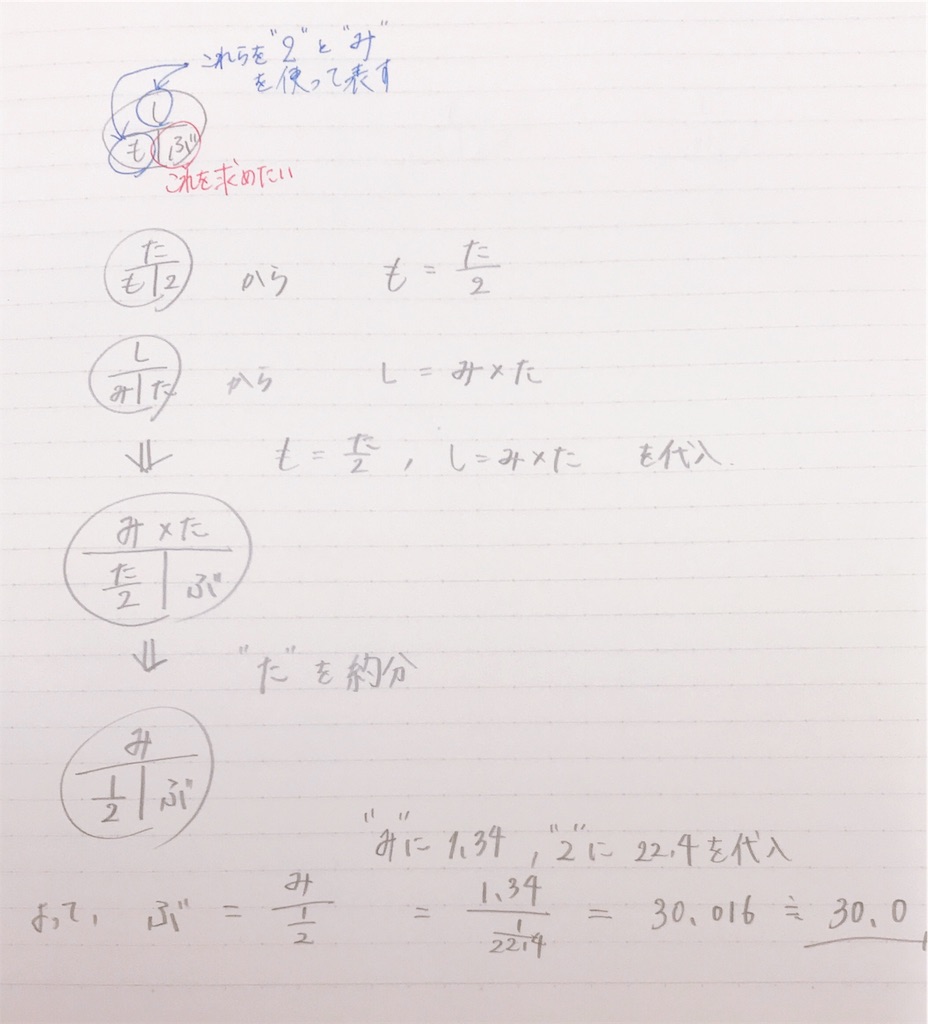 これらを"2"と"み"
を使って表す
し
も|ぶ
これを求めたい
た
も|2 から も = た/2
し
み|た から し = み×た
⇓ も = た/2 , し=み×た を代入
み×た
た/2 | ぶ
⇓ "た"を約分
み
1/2 | ぶ
"み"に 1.34 , "2"に 22.4を代入
よって、 ぶ = み/(1/2) = 1.34/(1/22.4) = 30.016 ≒ 30.0